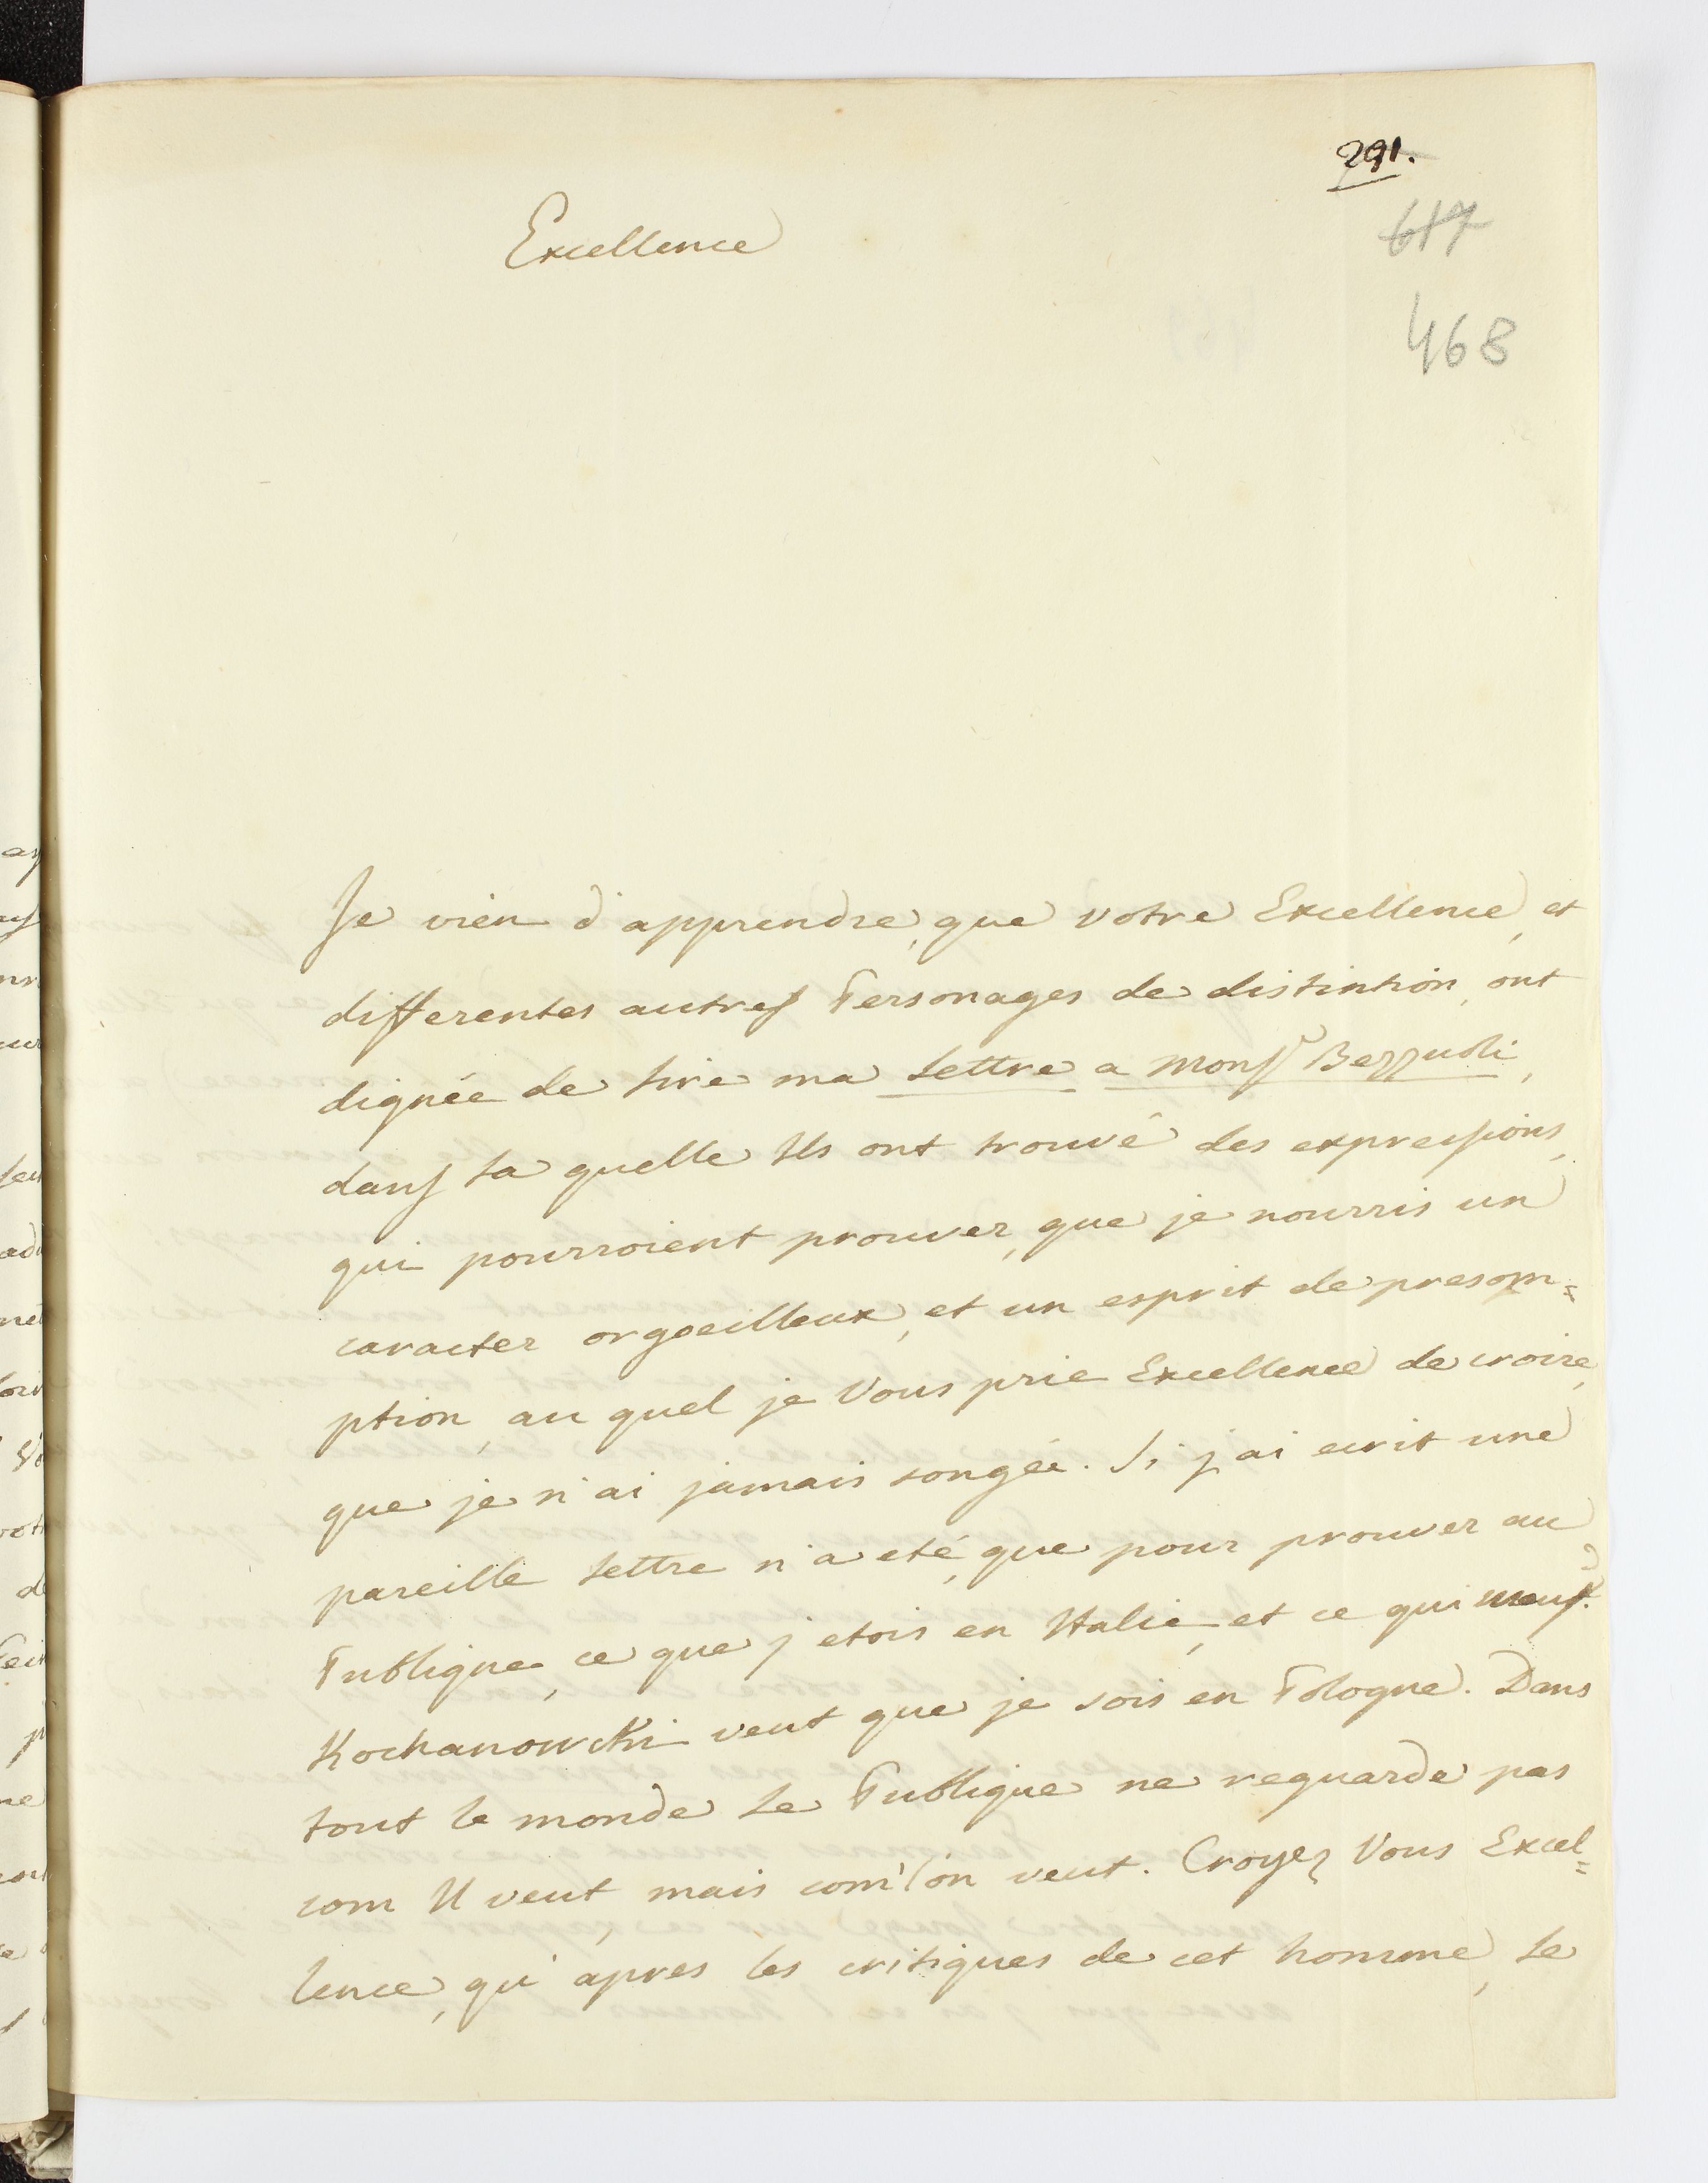 291.
617
468
Excellence
Je vien d'apprendre, que votre Excellence, et
differentes autres Personages de distintion, ont
dignée de lire ma Lettre a Monsr Bezzuoli,
dans la quelle Ils ont trouvé des expressions,
qui pourroient prouver, que je nourris un
caracter orgoeilleux, et un esprit de presom=
ption, au quel je Vous prie Excellence de croire,
que je n'ai jamais songée. Si j'ai ecrit une
pareille Lettre n'a eté, que pour prouver au
Publique, ce que j'etois en Italie, et ce qui
Kochanowcki veut que je sois en Pologne. Dans
tout le monde le Publique ne reguarde pas
com Il veut, mais com' l'on veut. Croyez Vous Excel=
lence, qu'apres les critiques de cet homme, le